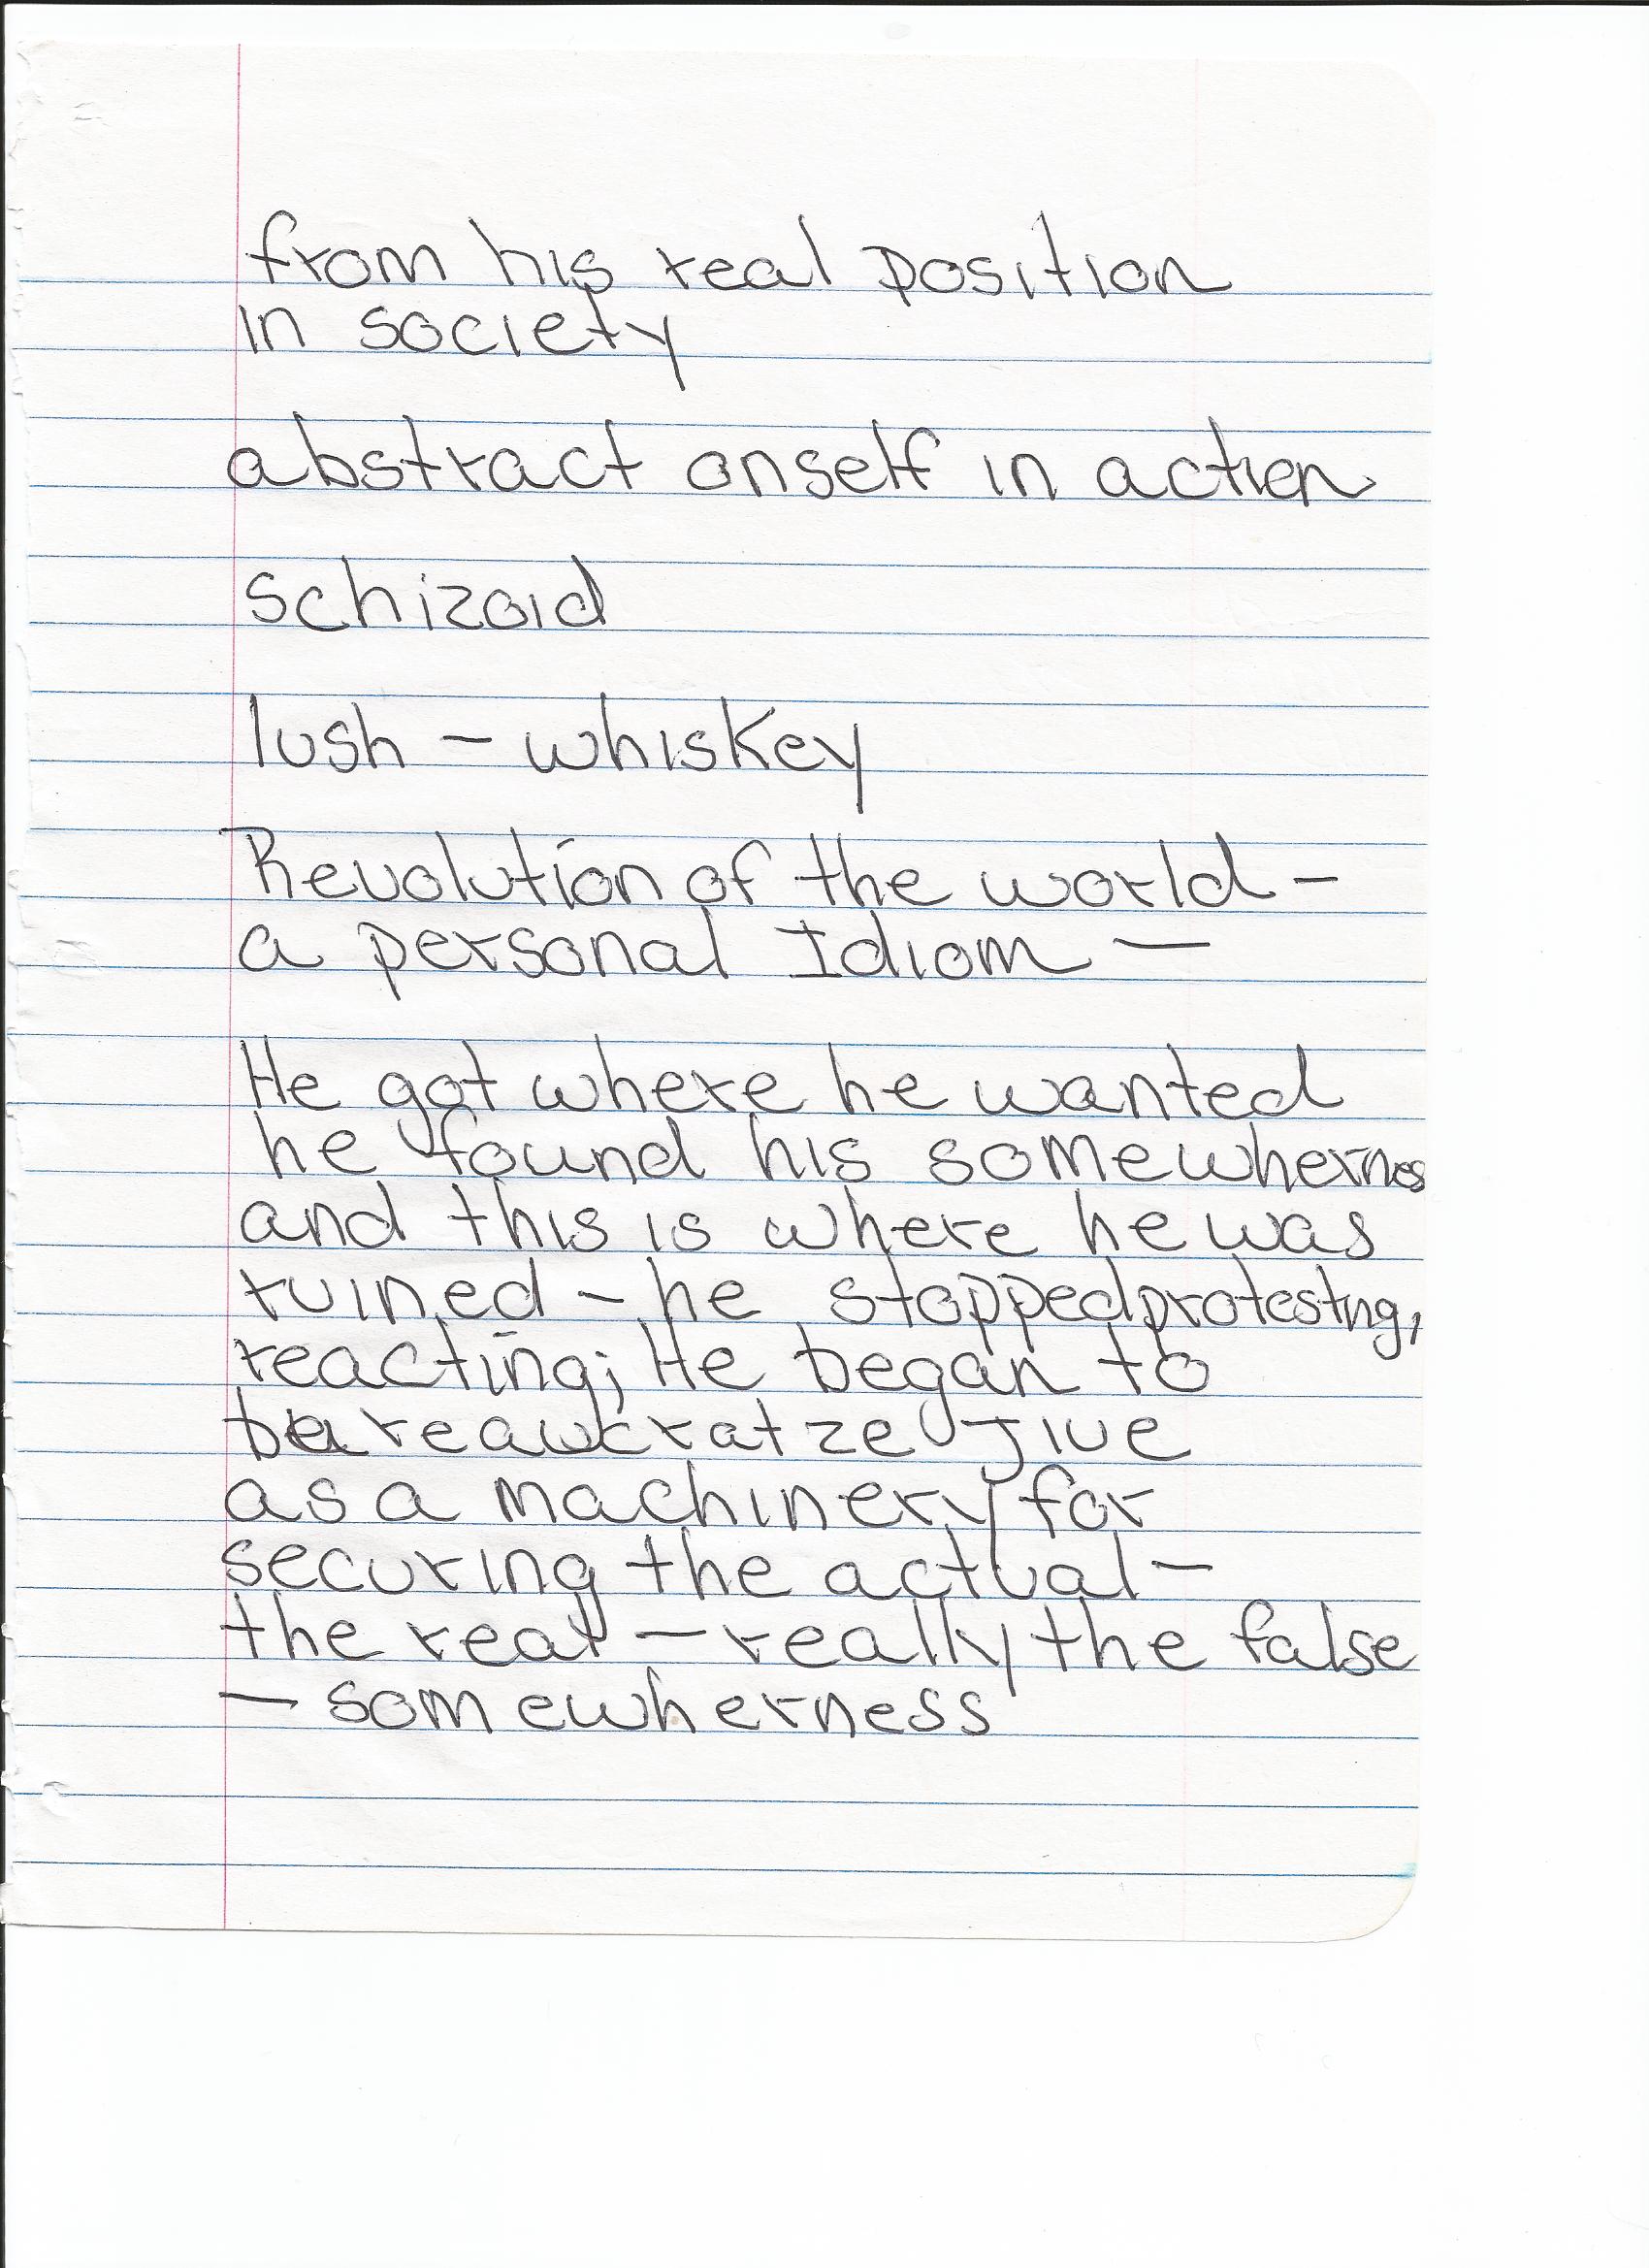 from his real position
in society
abstract onself in action
schizoid
lush – whiskey
Revolution of the world –
a personal Idiom —
He got where he wanted
he found his somewhernes
and this is where he was
ruined – he stopped protesting,
reacting; He began to
jive
as a machinery for
securing the actual –
the real – really the false
— somewherness